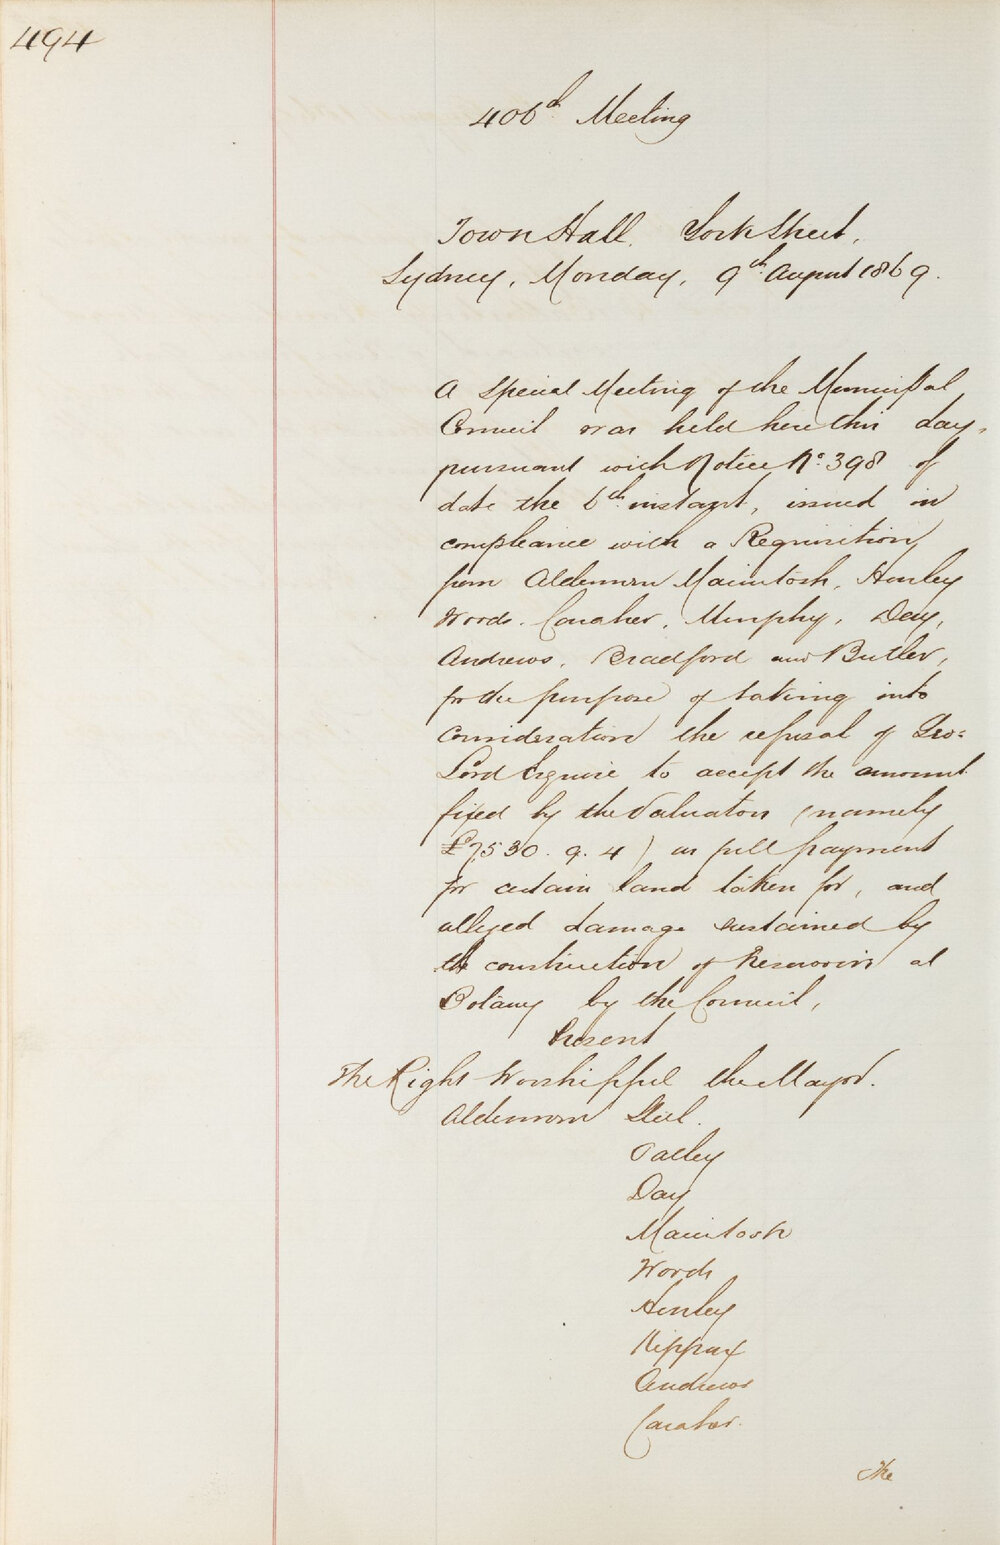 494
406th Meeting
Town Hall, York Street,
Sydney, Monday, 9th August 1869.
A Special Meeting of the Municipal
Council was held here this day,
pursuant with Notice No. 398 of
date the 6th instant, issued in
compliance with a Requisition
from Aldermen Macintosh, Henley
Woods, Caraher, Murphy, Day,
Andrews, Bradford and Butler,
for the purpose of taking into
consideration the refusal of Geo:
Lord Esquire to accept the amount
fixed by the Valuators (namely
£7,530. 9. 4) as full payment
for certain land taken for, and
alleged damage sustained by
the construction of Reservoirs at
Botany by the Council,
Present
The Right Worshipful the Mayor.
Aldermen Steel.
Oatley
Day
Macintosh
Woods
Henley
Kippax
Andrews
Caraher.
The